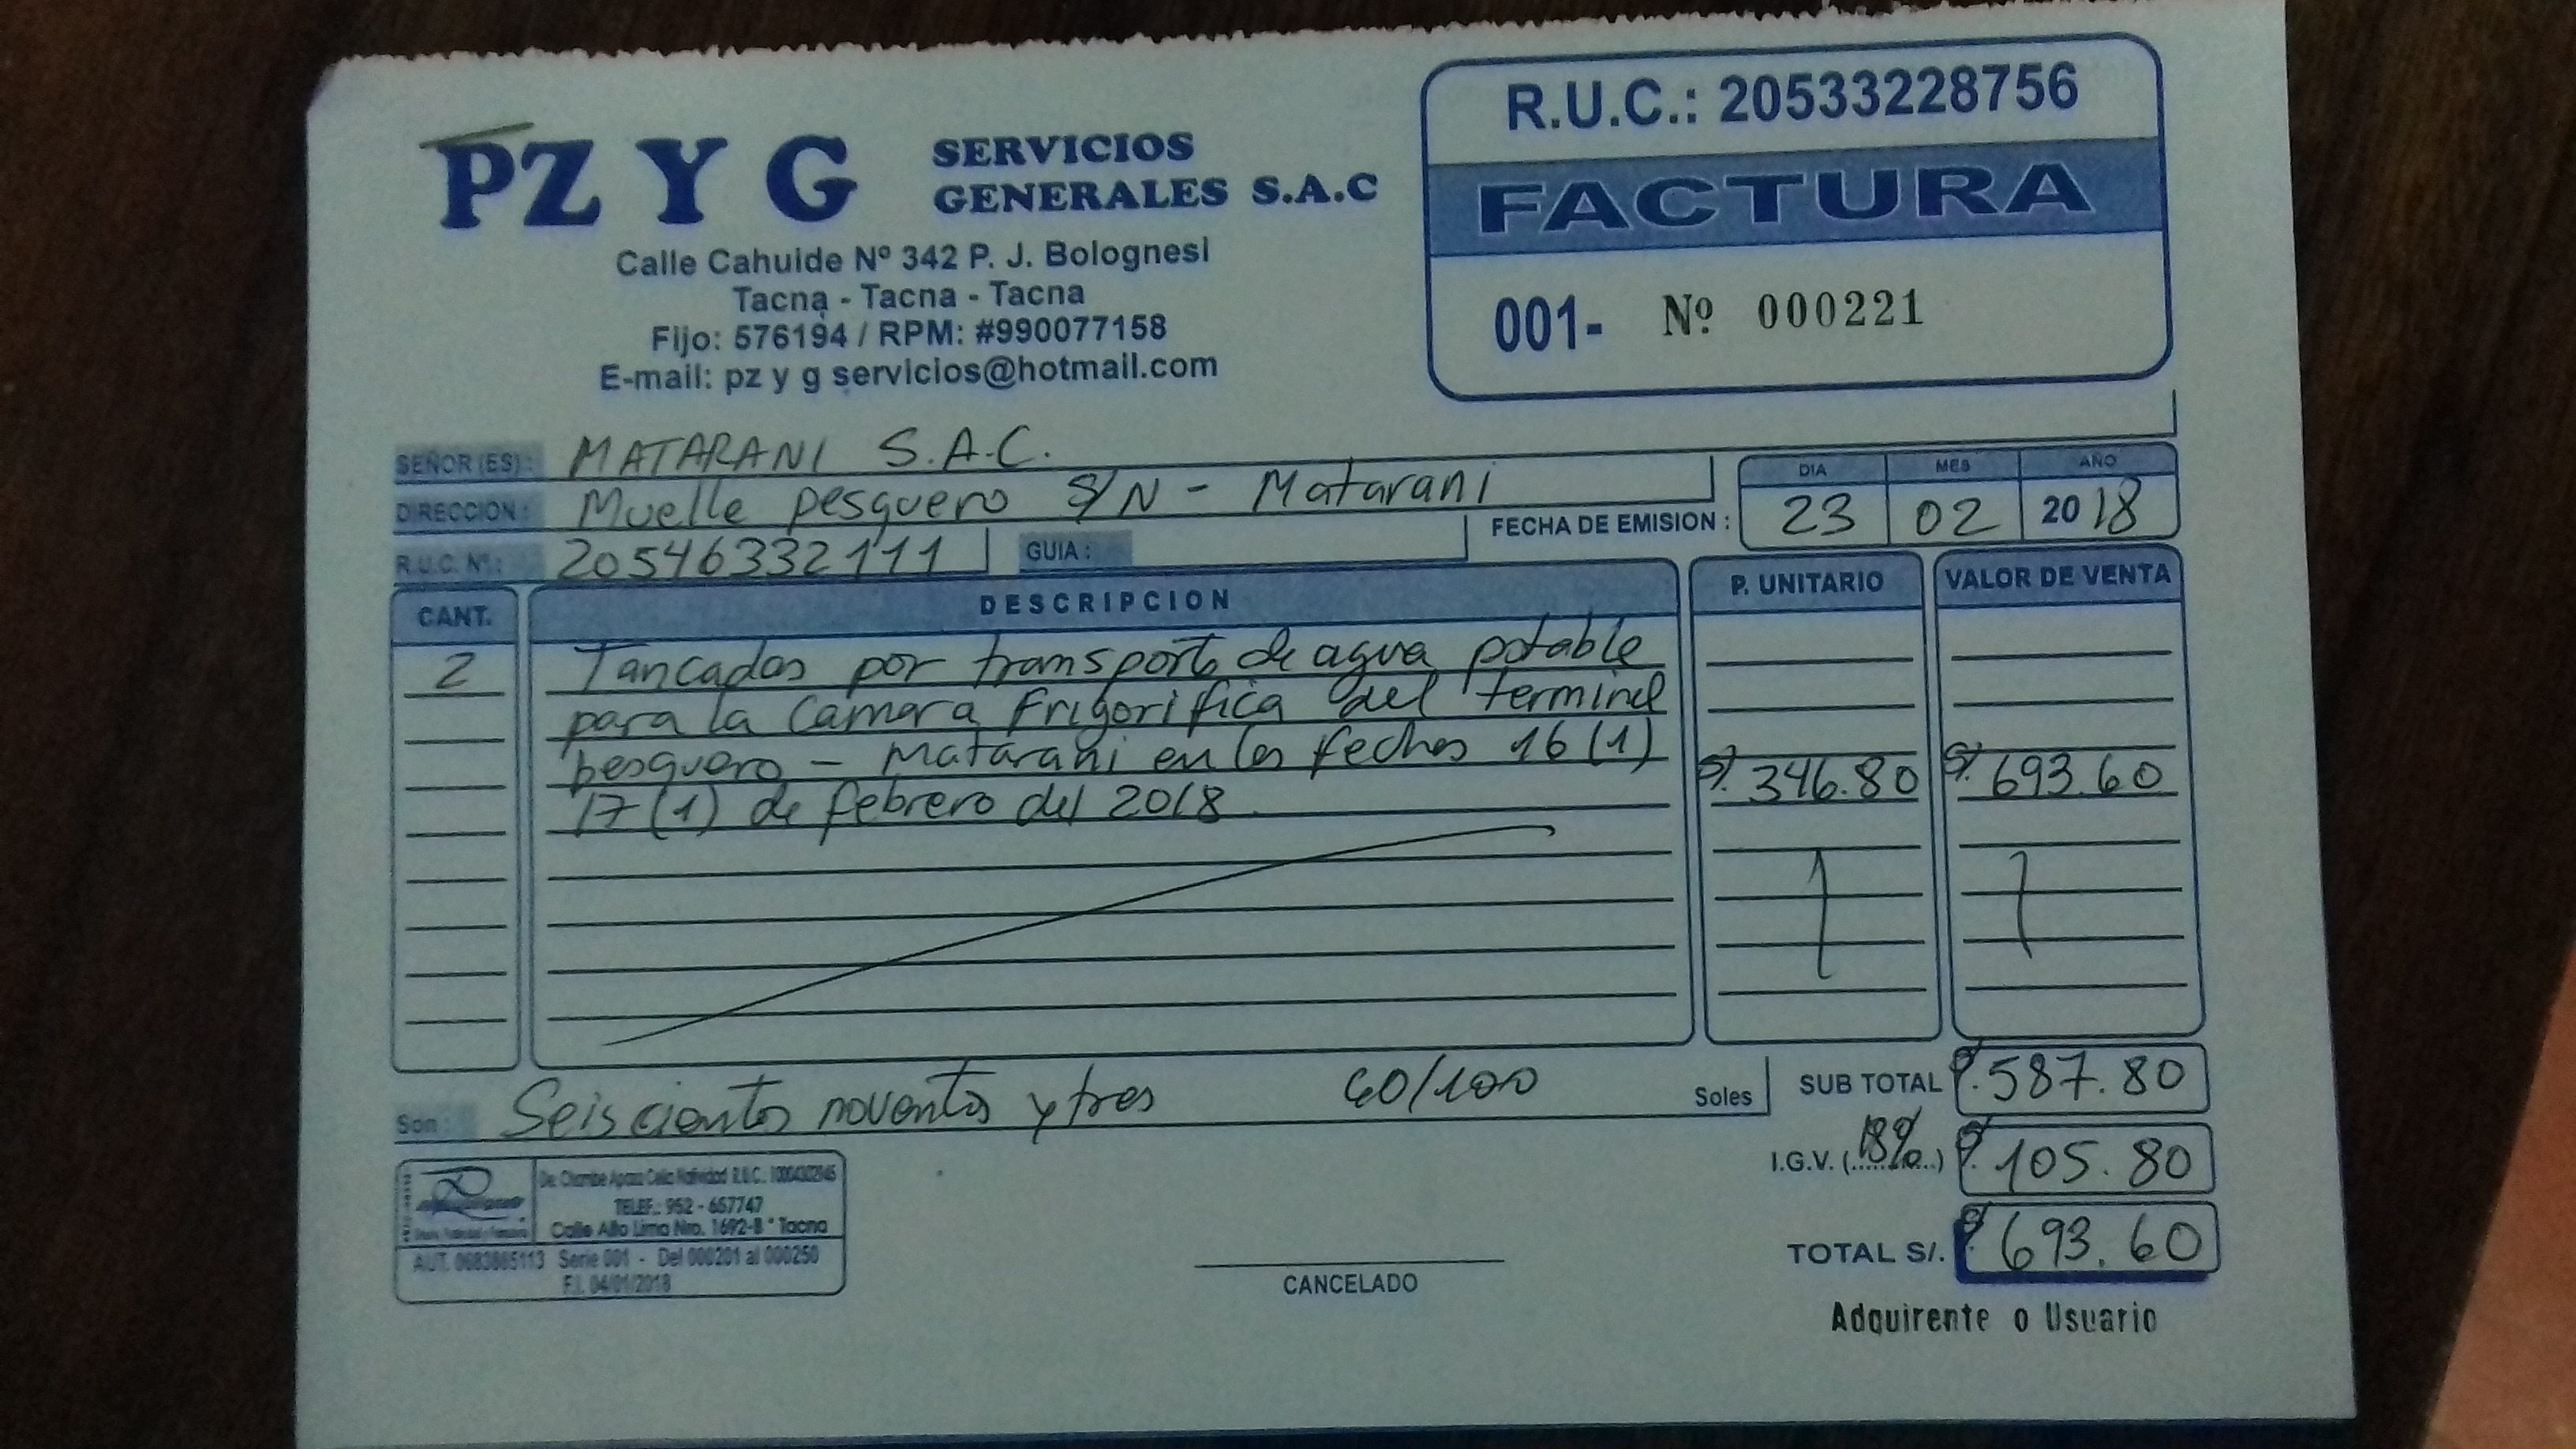 PZ Y G SERVICIOS GENERALES S.A.C
Calle Cahuide Nº 342 P. J. Bolognesi
Tacna - Tacna - Tacna
Fijo: 576194 / RPM: #990077158
E-mail: pz y g servicios@hotmail.com
R.U.C.: 20533228756
FACTURA
001- Nº 000221
SEÑOR (ES): MATARANI S.A.C.
DIRECCION: Muelle pesquero S/N - Matarani
R.U.C. Nº.: 20546332111 GUIA:
FECHA DE EMISION: DIA MES AÑO
23 02 2018
CANT. DESCRIPCION P. UNITARIO VALOR DE VENTA
2 Tancadas por transporte de agua potable
para la Camara frigorifica del terminal
pesquero - Matarani en las fechas 16 (1)
17 (1) de febrero del 2018 S/. 346.80 S/. 693.60
Son: Seiscientos noventa y tres 60/100 Soles
SUB TOTAL S/. 587.80
I.G.V. (18%) S/. 105.80
TOTAL S/. S/. 693.60
De. Chambe Apaza Celia Natividad R.U.C.:
TELEF.: 952 - 657747
Calle Alto Lima Nro. 1692-B * Tacna
AUT. 0683865113 Serie 001 - Del 000201 al 000250
F.I. 04/01/2018
CANCELADO
Adquirente o Usuario